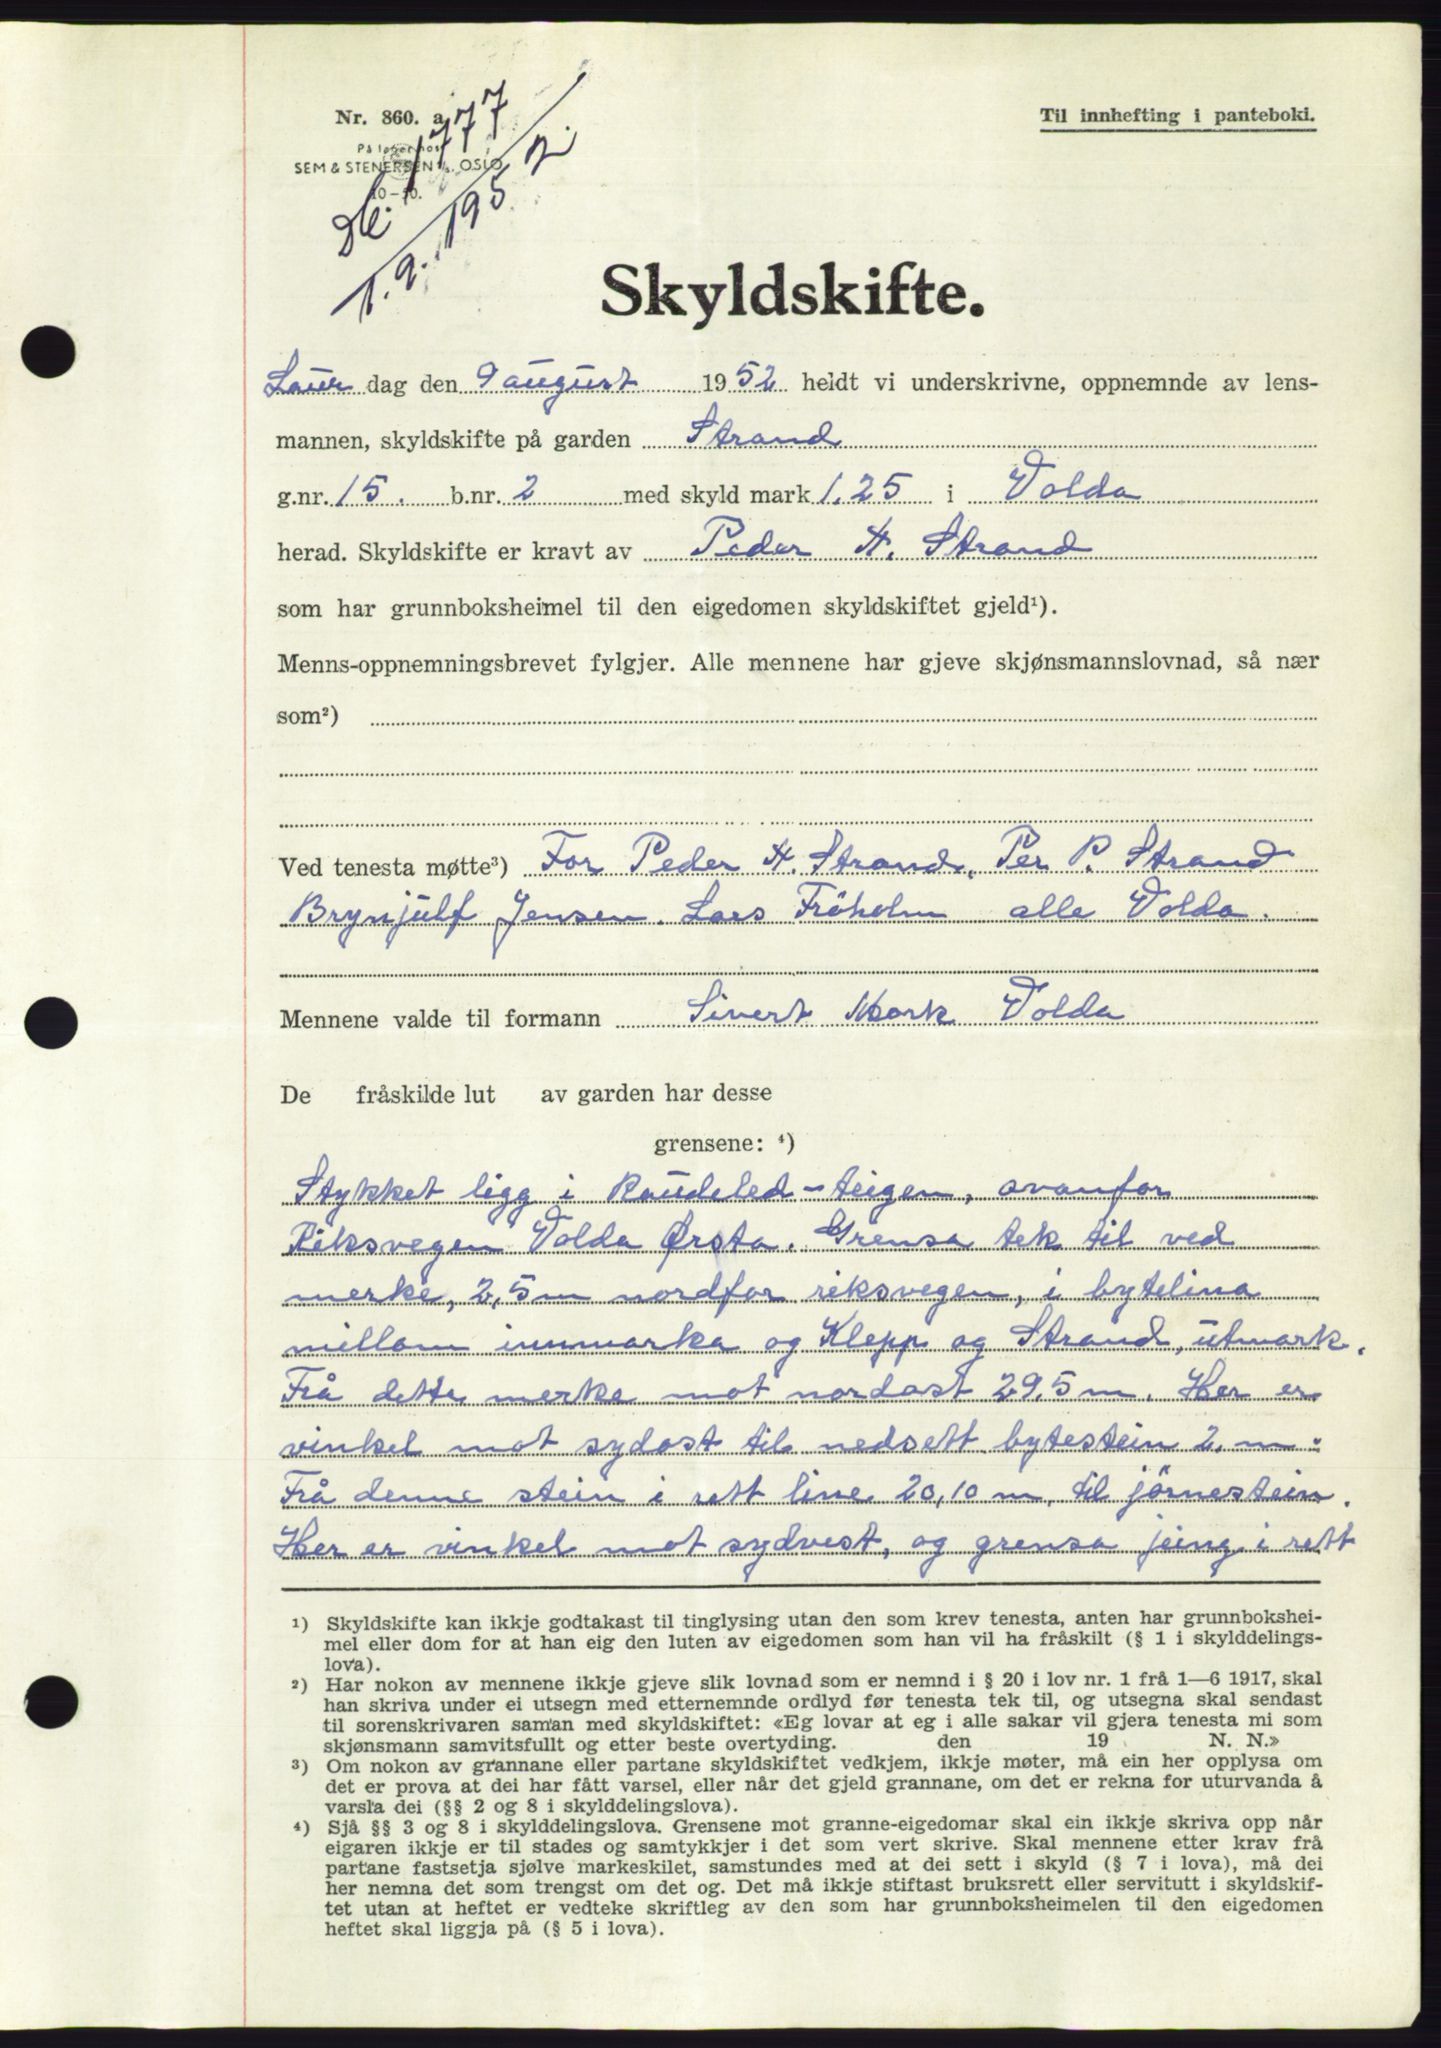 Nr. 860. a
På lager hos
SEM & STENERSEN A/S. OSLO
10-50.
Til innhefting i panteboki.
Db. 1777
1.9. 1952.
Skyldskifte.
Laur dag den 9 august 1952 heldt vi underskrivne, oppnemnde av lens-
mannen, skyldskifte på garden Strand
g.nr. 15. b.nr. 2 med skyld mark 1.25 i Volda
herad. Skyldskifte er kravt av Peder H. Strand
som har grunnboksheimel til den eigedomen skyldskiftet gjeld¹).
Menns-oppnemningsbrevet fylgjer. Alle mennene har gjeve skjønsmannslovnad, så nær
som²)
Ved tenesta møtte³) For Peder H. Strand, Per P. Strand
Brynjulf Jensen. Lars Fröholm alle Volda.
Mennene valde til formann Sivert Mork Volda
De fråskilde lut av garden har desse
grensene: ⁴)
Stykket ligg i Raudeled-teigen, ovanfor
Riksvegen Volda Ørsta. Grensa tek til ved
merke, 2,5 m nordfor riksvegen, i bytelina
millom innmarka og Klepp og Strand, utmark.
Frå dette merke mot nordast 29.5 m. Her er
vinkel mot sydast til nedsett bytestein 2. m.
Frå denne stein i rett line 20,10 m. til jörnestein.
Her er vinkel mot sydvest, og grensa jeing i rett
1) Skyldskifte kan ikkje godtakast til tinglysing utan den som krev tenesta, anten har grunnbokshei-
mel eller dom for at han eig den luten av eigedomen som han vil ha fråskilt (§ 1 i skylddelings-
lova).
2) Har nokon av mennene ikkje gjeve slik lovnad som er nemnd i § 20 i lov nr. 1 frå 1—6 1917, skal
han skriva under ei utsegn med etternemnde ordlyd før tenesta tek til, og utsegna skal sendast
til sorenskrivaren saman med skyldskiftet: «Eg lovar at eg i alle sakar vil gjera tenesta mi som
skjønsmann samvitsfullt og etter beste overtyding. den 19 N. N.»
3) Om nokon av grannane eller partane skyldskiftet vedkjem, ikkje møter, må ein her opplysa om
det er prova at dei har fått varsel, eller når det gjeld grannane, om det er rekna for uturvanda å
varsla dei (§§ 2 og 8 i skylddelingslova).
4) Sjå §§ 3 og 8 i skylddelingslova. Grensene mot granne-eigedomar skal ein ikkje skriva opp når
eigaren ikkje er til stades og samtykkjer i det som vert skrive. Skal mennene etter krav frå
partane fastsetja sjølve markeskilet, samstundes med at dei sett i skyld (§ 7 i lova), må dei
her nemna det som trengst om det og. Det må ikkje stiftast bruksrett eller servitutt i skyldskif-
tet utan at heftet er vedteke skriftleg av den som har grunnboksheimelen til den eigedomen
heftet skal liggja på (§ 5 i lova).